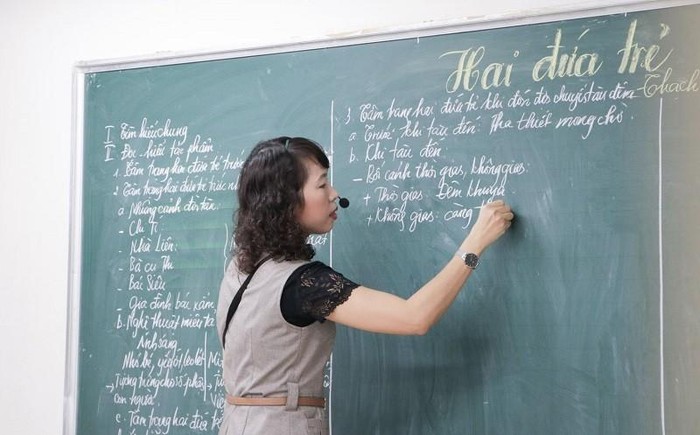 Hai đứa trẻ
- Thạch
I Tìm hiểu chung
II Đọc - hiểu tác phẩm
1. Tâm trạng hai đứa trẻ trước
2. Tâm trạng hai đứa trẻ trước
a Những cảnh đời tàn.
- Chị Tí
- Nhà Liên.
- Bà cụ Thi
- Bác Siêu
- Gia đình bác xẩm
b. Nghệ thuật miêu tả
Ánh sáng
Nhỏ bé, yếu ớt
→ Tượng trưng cho số phận
con người
c. Tâm trạng hai đứa trẻ
3 Tâm trạng hai đứa trẻ khi đón đợi chuyến tàu đêm
a. Trước khi tàu đến: Tha thiết mong chờ
b. Khi tàu đến
- Bối cảnh thời gian, không gian:
+ Thời gian: Đêm khuya
+ Không gian: càng